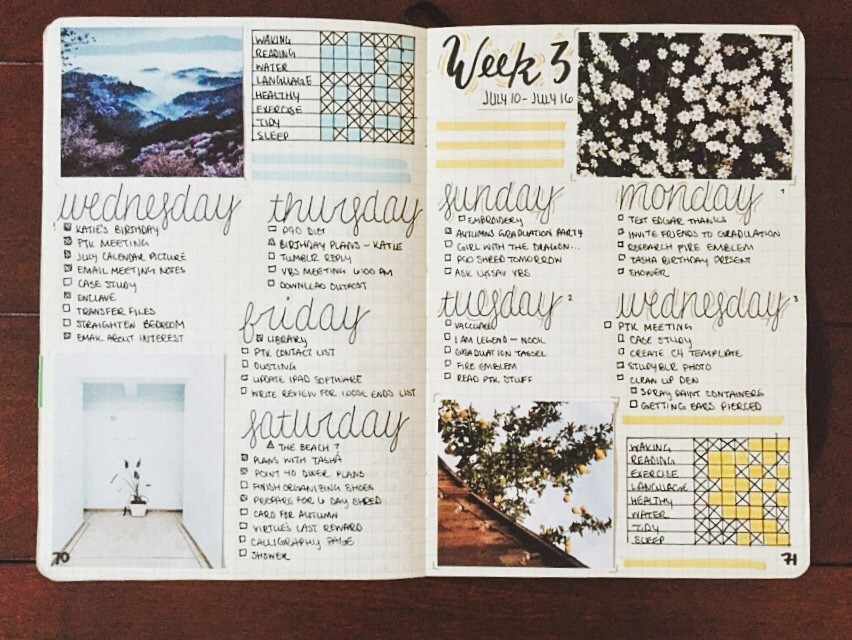 WAKING
READING
WATER
LANGUAGE
HEALTHY
EXERCISE
TIDY
SLEEP
wednesday
KATIE'S BIRTHDAY
PTK MEETING
JULY CALENDAR PICTURE
EMAIL MEETING NOTES
CASE STUDY
ENCLAVE
TRANSFER FILES
STRAIGHTEN BEDROOM
EMAIL ABOUT INTEREST
thursday
P90 DIET
BIRTHDAY PLANS - KATIE
TUMBLR REPLY
VBS MEETING 6:00 PM
DOWNLOAD OUTCAST
friday
LIBRARY
PTK CONTACT LIST
DUSTING
UPDATE IPAD SOFTWARE
WRITE REVIEW FOR LOOSE ENDS LIST
saturday
THE BEACH ?
PLANS WITH TASHA
POINT 40 DIVER PLANS
FINISH ORGANIZING SHOES
PREPARE FOR 6 DAY SHRED
CARD FOR AUTUMN
VIRTUE'S LAST REWARD
CALLIGRAPHY PAGE
SHOWER
70
Week 3
JULY 10 - JULY 16
sunday
EMBROIDERY
AUTUMNS GRADUATION PARTY
GIRL WITH THE DRAGON...
P90 SHRED TOMORROW
ASK VBS
monday
1
TEXT EDGAR THANKS
INVITE FRIENDS TO GRADUATION
RESEARCH FIRE EMBLEM
TASHA BIRTHDAY PRESENT
SHOWER
tuesday
2
VACCUUM
I AM LEGEND - NOOK
GRADUATION TASSEL
FIRE EMBLEM
READ PTK STUFF
wednesday
3
PTK MEETING
CASE STUDY
CREATE C4 TEMPLATE
STUDYBLR PHOTO
CLEAN UP DEN
SPRAY PAINT CONTAINERS
GETTING EARS PIERCED
WAKING
READING
EXERCISE
LANGUAGE
HEALTHY
WATER
TIDY
SLEEP
71